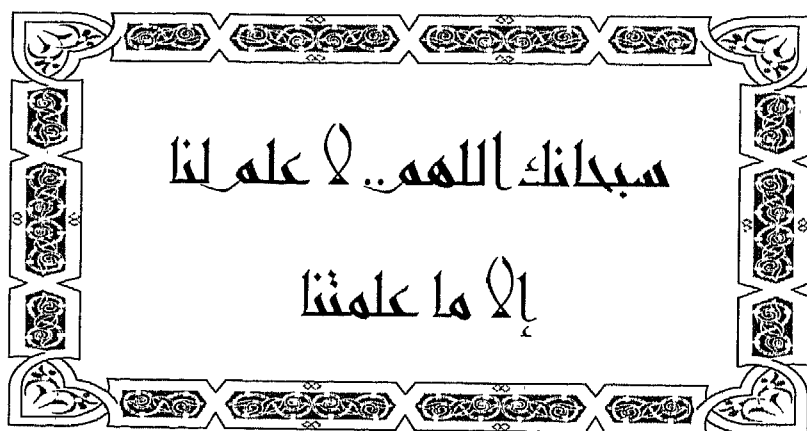 سبحانك اللهم.. لا علم لنا
إلا ما علمتنا